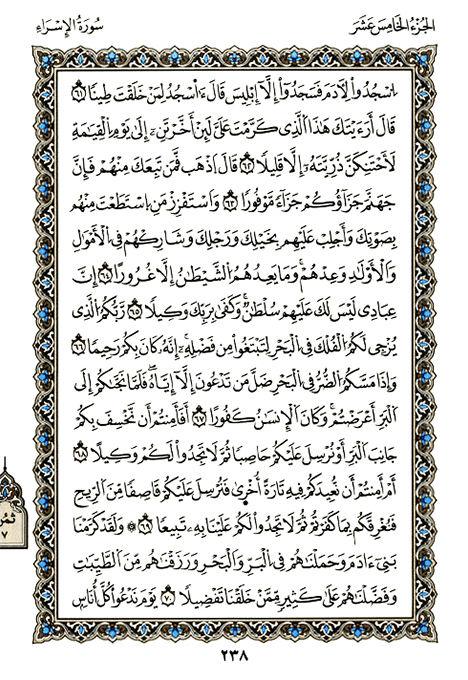 الجُزْءُ الخَامِسَ عَشَرَ
سُورَةُ الإِسْرَاءِ
اسْجُدُوا۟ لِأٓدَمَ فَسَجَدُوٓا۟ إِلَّآ إِبْلِيسَ قَالَ ءَا۬سْجُدُ لِمَنْ خَلَقْتَ طِينًا ٦١
قَالَ أَرَءَيْتَكَ هَٰذَا الَّذِى كَرَّمْتَ عَلَىَّ لَئِنْ أَخَّرْتَنِۦ إِلَىٰ يَوْمِ الْقِيَٰمَةِ
لَأَحْتَنِكَنَّ ذُرِّيَّتَهُۥٓ إِلَّا قَلِيلًا ٦٢ قَالَ اذْهَب فَّمَن تَبِعَكَ مِنْهُمْ فَإِنَّ
جَهَنَّمَ جَزَآؤُكُمْ جَزَآءً مَّوْفُورًا ٦٣ وَاسْتَفْزِزْ مَنِ اسْتَطَعْتَ مِنْهُم
بِصَوْتِكَ وَأَجْلِبْ عَلَيْهِم بِخَيْلِكَ وَرَجْلِكَ وَشَارِكْهُمْ فِى الْأَمْوَٰلِ
وَالْأَوْلَٰدِ وَعِدْهُمْ وَمَا يَعِدُهُمُ الشَّيْطَٰنُ إِلَّا غُرُورًا ٦٤ إِنَّ
عِبَادِى لَيْسَ لَكَ عَلَيْهِمْ سُلْطَٰنٌ وَكَفَىٰ بِرَبِّكَ وَكِيلًا ٦٥ رَّبُّكُمُ الَّذِى
يُزْجِى لَكُمُ الْفُلْكَ فِى الْبَحْرِ لِتَبْتَغُوا۟ مِن فَضْلِهِۦٓ إِنَّهُۥ كَانَ بِكُمْ رَحِيمًا ٦٦
وَإِذَا مَسَّكُمُ الضُّرُّ فِى الْبَحْرِ ضَلَّ مَن تَدْعُونَ إِلَّآ إِيَّاهُ فَلَمَّا نَجَّىٰكُمْ إِلَى
الْبَرِّ أَعْرَضْتُمْ وَكَانَ الْإِنسَٰنُ كَفُورًا ٦٧ أَفَأَمِنتُمْ أَن نَّخْسِفَ بِكُمْ
جَانِبَ الْبَرِّ أَوْ نُرْسِلَ عَلَيْكُمْ حَاصِبًا ثُمَّ لَا تَجِدُوا۟ لَكُمْ وَكِيلًا ٦٨
أَمْ أَمِنتُمْ أَن نُّعِيدَكُمْ فِيهِ تَارَةً أُخْرَىٰ فَنُرْسِلَ عَلَيْكُمْ قَاصِفًا مِّنَ الرِّيحِ
فَنُغْرِقَكُم بِمَا كَفَرْتُمْ ثُمَّ لَا تَجِدُوا۟ لَكُمْ عَلَيْنَا بِهِۦ تَبِيعًا ٦٩ ۞ وَلَقَدْ كَرَّمْنَا
بَنِىٓ ءَادَمَ وَحَمَلْنَٰهُمْ فِى الْبَرِّ وَالْبَحْرِ وَرَزَقْنَٰهُم مِّنَ الطَّيِّبَٰتِ
وَفَضَّلْنَٰهُمْ عَلَىٰ كَثِيرٍ مِّمَّنْ خَلَقْنَا تَفْضِيلًا ٧٠ يَوْمَ نَدْعُوا۟ كُلَّ أُنَاسٍ
٢٣٨